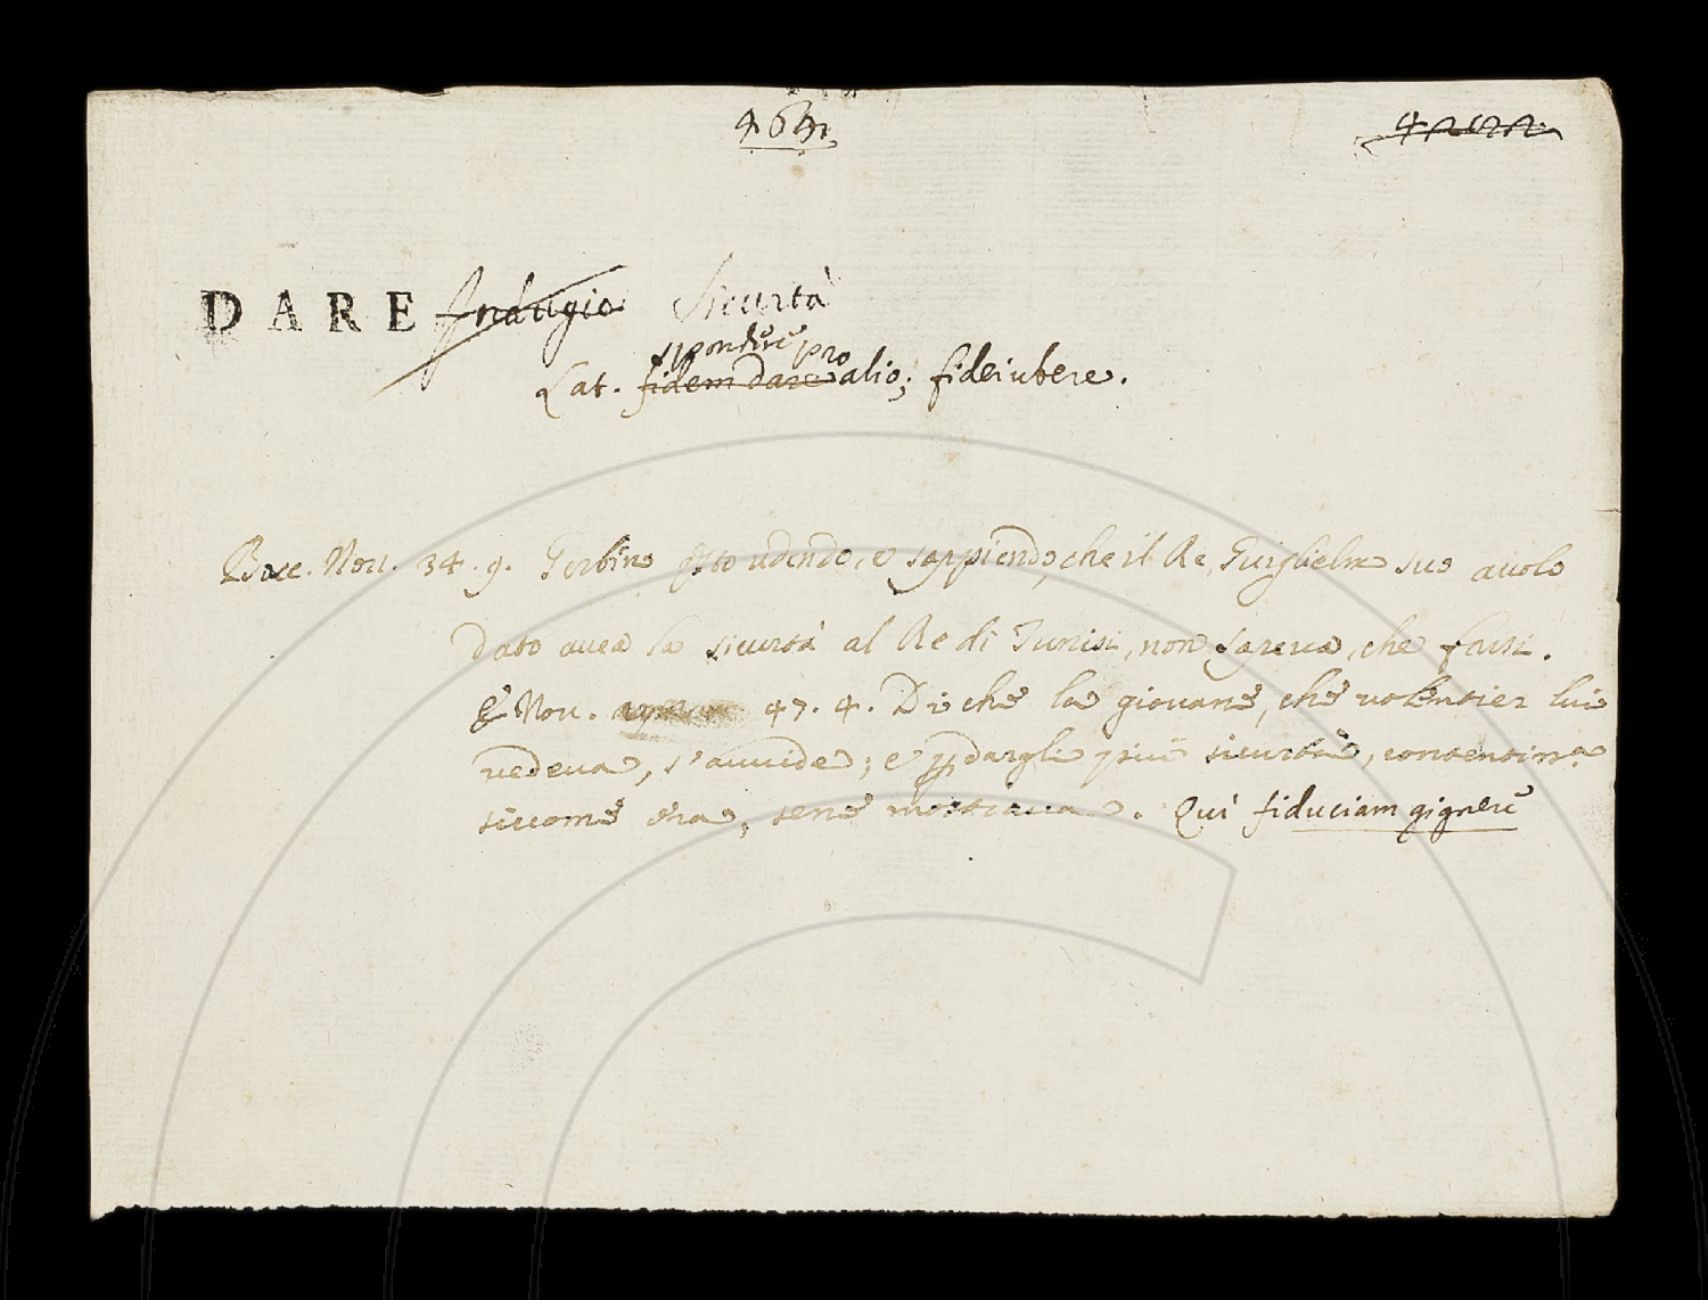 DARE Indugio Sicurtà
spondere pro
Lat. fidem dare alio; fideiubere.
Bocc. Nov. 34. 9. Gerbino qsto udendo, e sappiendo, che il Re Guiglielmo suo avolo
dato avea la sicurtà al Re di Tunisi, non sapeva, che farsi.
E Nov. 47. 4. Di che la giovane, che volentier lui
vedeva, s'avvide; e p dargli più sicurtà, contentissa
siccome era, sene mostrava. Qui fiduciam gignere